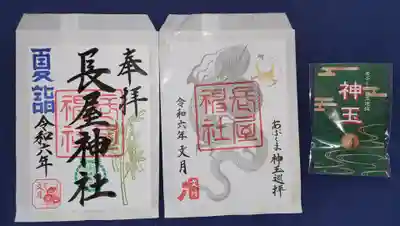 奉拝
長屋神社
夏詣
令和六年
文月
長屋
福社
令和六年 文月
あぶくま神玉巡拝
長屋
福社
神玉